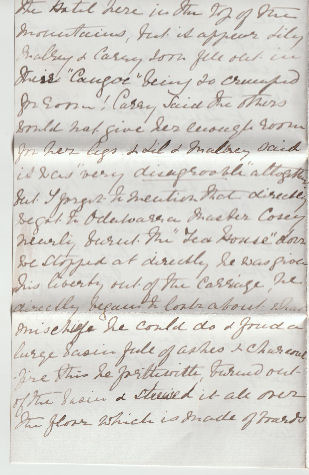 the Hotel here in the top of the
mountains, but is appear Lily
Mabrey & Carry soon fell out in
their "Cangoe" being so cramped
for room! Carry said the others
would not give her enough room
for her legs & Lil & Mabrey said
it was "very disagreeable" altogether
but I forgot to mention that directly
we got to Odawarra Master Cosey
nearly burnt the "Tea House" down
we stopped at directly he was given
his liberty out of the carriage he
directly began to look about what
mischife he could do & found a
large basin full of ashes & charcoal
fire this he forthwith turned out
of the basin & strewed it all over
the floor which is made of boards